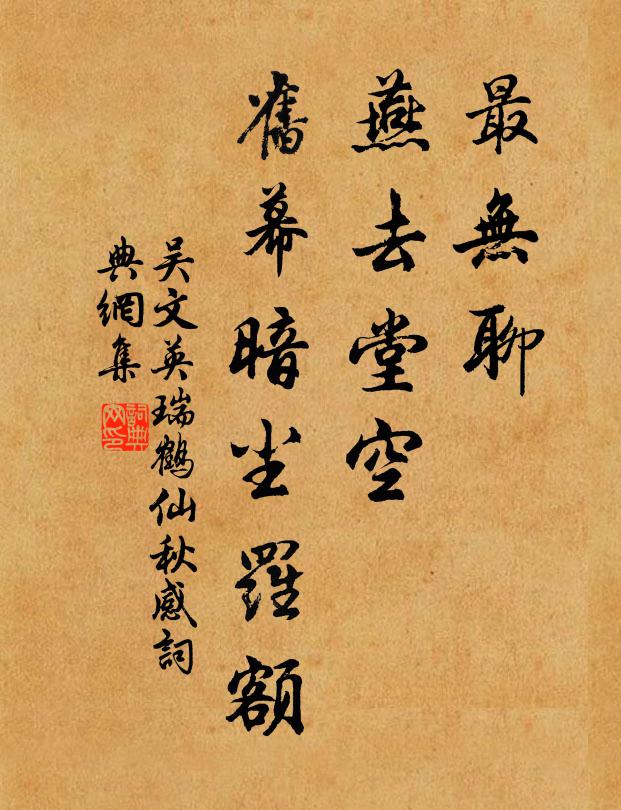 最無聊
燕去堂空
舊幕暗尘羅額
吴文英瑞鶴仙秋感詞
典網集
詞典
网印